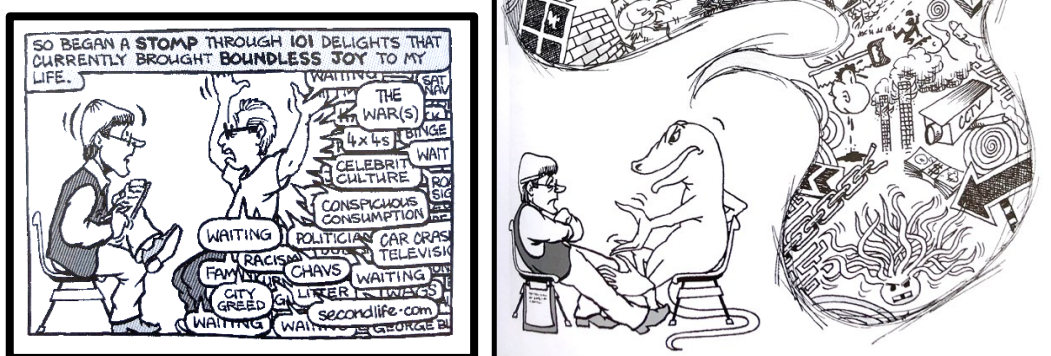 SO BEGAN A STOMP THROUGH 101 DELIGHTS THAT
CURRENTLY BROUGHT BOUNDLESS JOY TO MY
LIFE.
WAITING
SAT
NAV
THE
WAR(S)
4x4s
BINGE
CELEBRIT
CULTURE
WAIT
CONSPICUOUS
CONSUMPTION
WAITING
POLITICIAN
CAR CRAS
TELEVISI
RACISM
CHAVS
WAITING
CITY
GREED
LITTER
secondlife.com
WAITING
WAITI
GEORGE B
CCTV